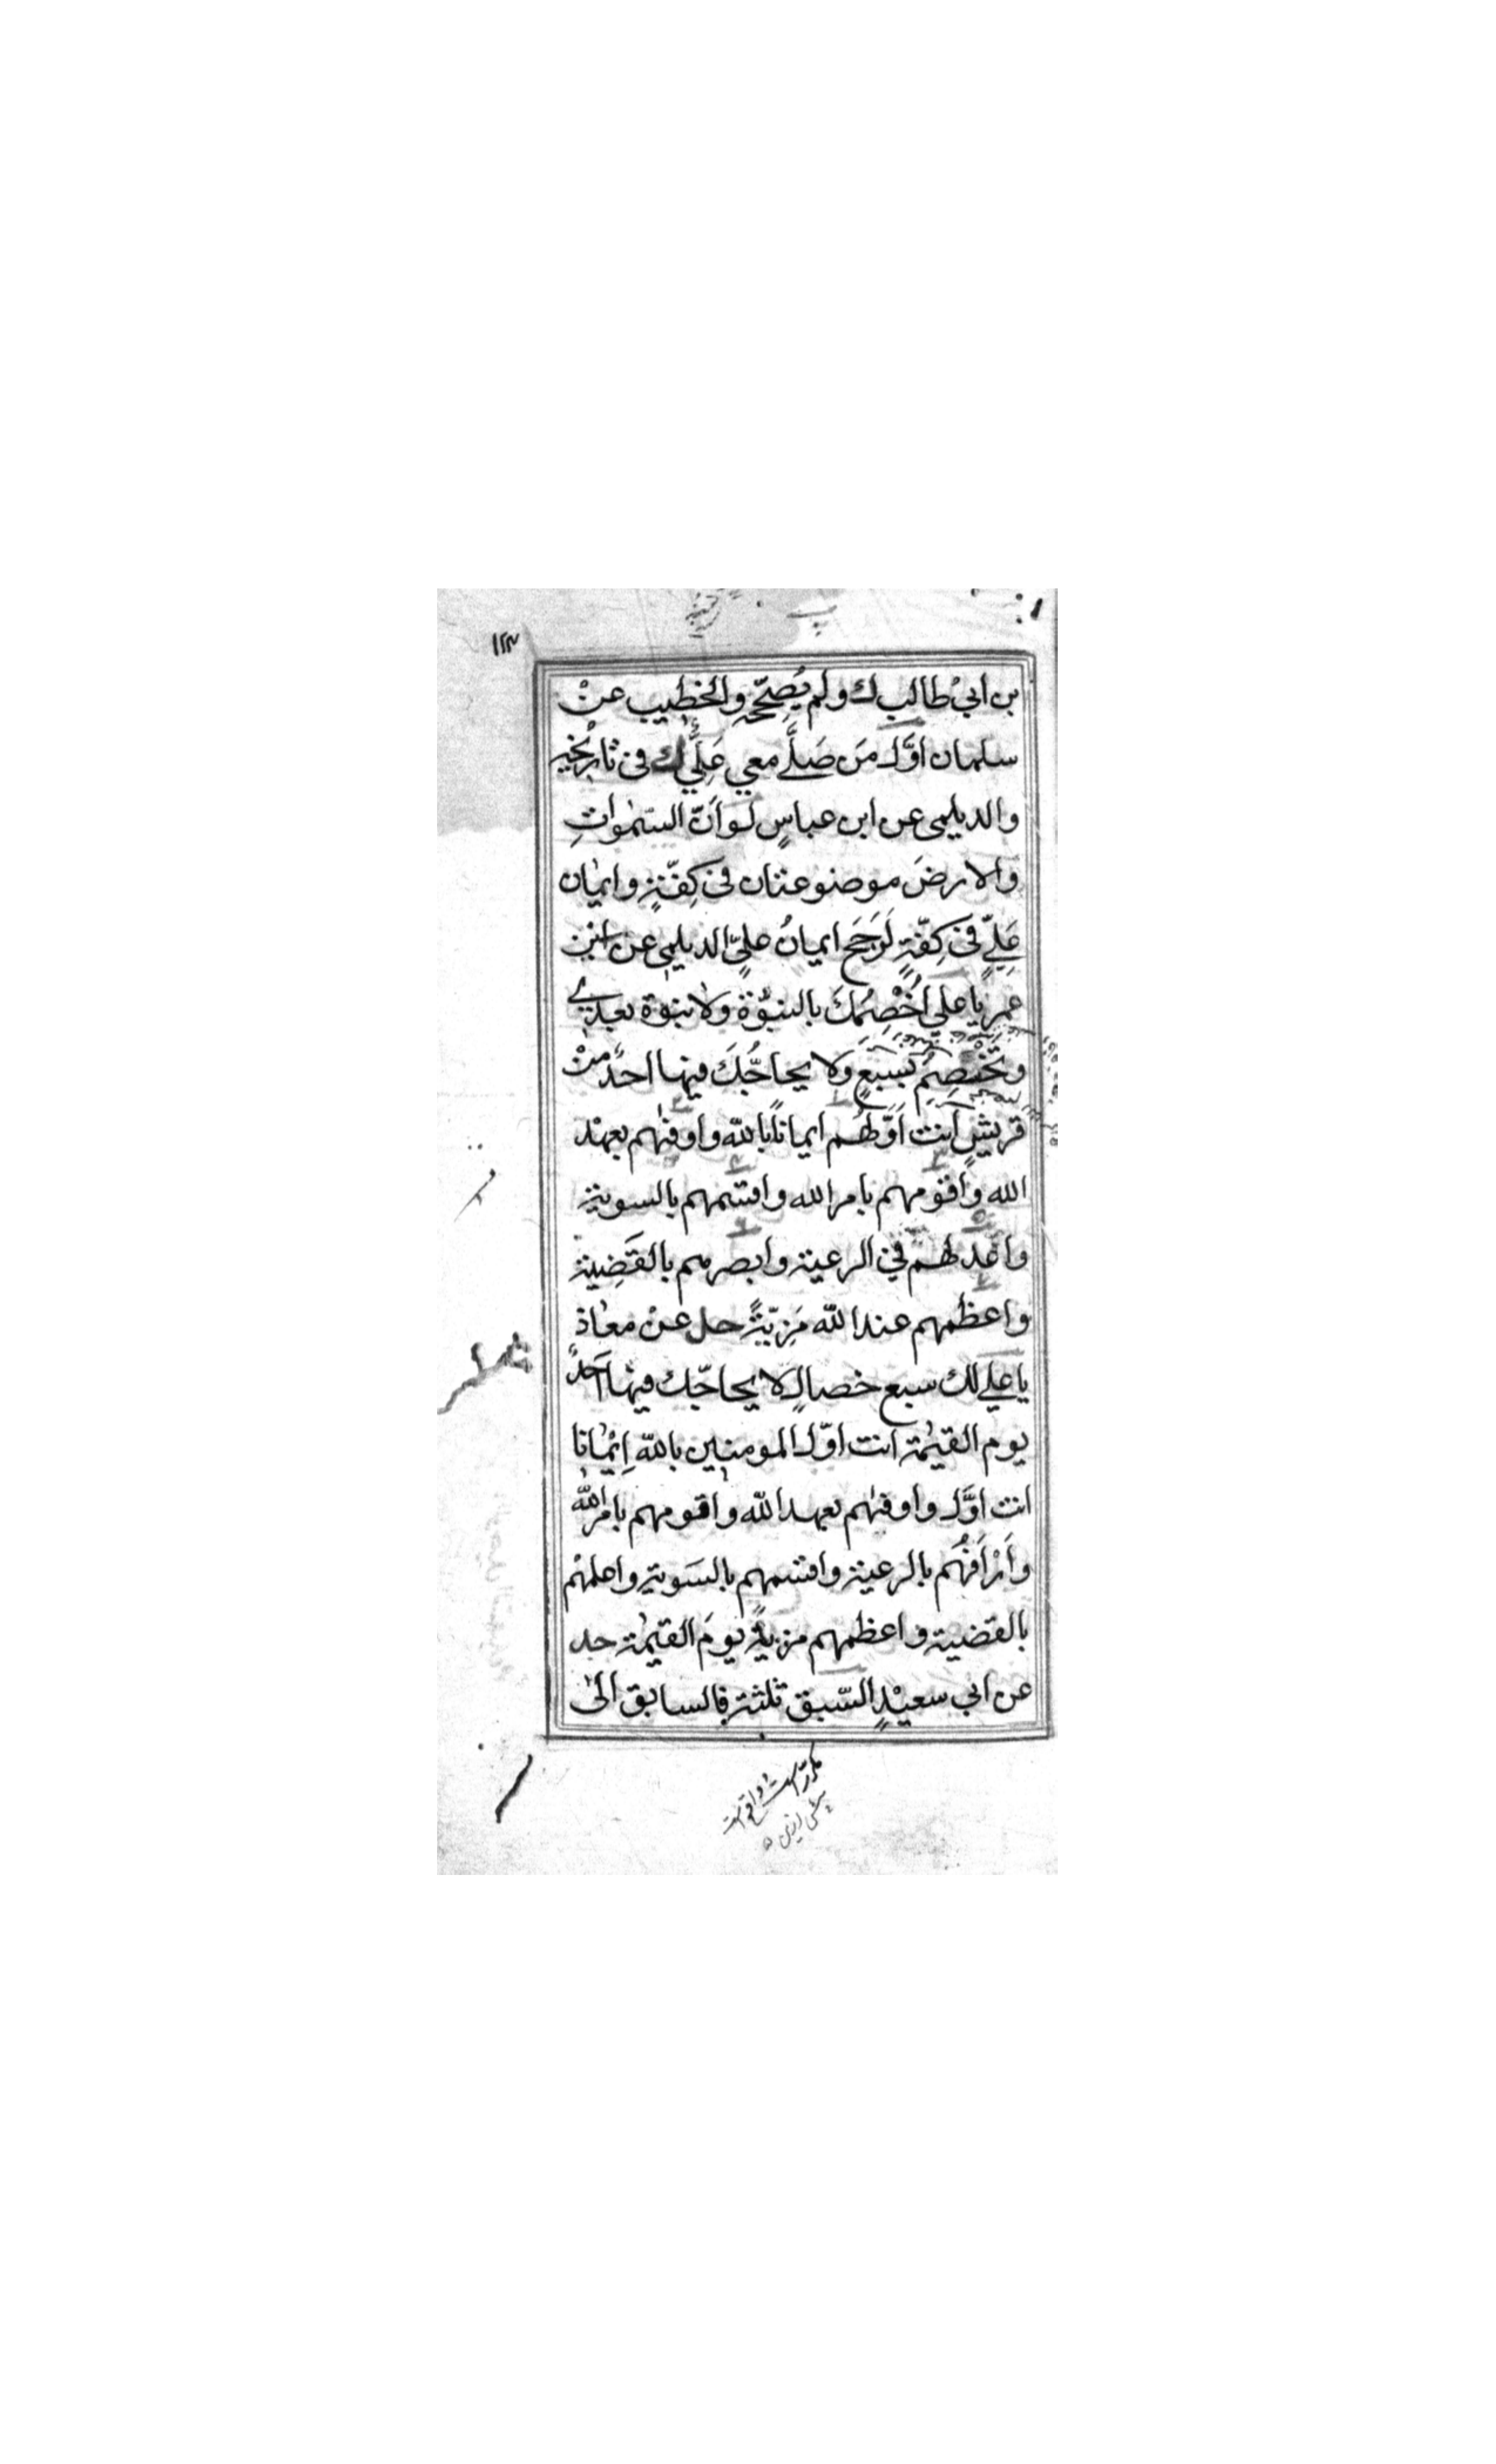 ١١٣
بن ابيْ طالب ك ولم يُصحّحه والخطيب عنْ
سلمان اوَّل مَن صَلَّے معي عَلِيٌّ ك فى تاريْخه
والديلمى عن ابن عباسٍ لو اَنّ السمٰواتِ
والارضَ موضوعتان فى كِفّةٍ وايمان
عَلِيٍّ فى كِفّةٍ لَرَجَحَ ايمانُ عليٍّ الديلمى عن ابن
عمر يا على اَخْصِمُكَ بالنبوّة ولا نبوة بعدے
وتَخْصِمُ بسَبْعٍ ولا يحاجُّكَ فيها احدٌ منْ
قريشٍ اَنت اَوّلهُم ايماناً بالله واوفٰهم بعهْد
الله واَقومهم بامر الله واقسمهم بالسوية
واَعْدلهم في الرعية وابصرهم بالقَضِية
واعظمهم عند الله مَزِيّةً حل عنْ معاذ
يا علي لك سبع خصالٍ لا يحاجّك فيها اَحدٌ
يوم القيٰمة انت اوّل المومنين بالله اِيْمٰانا
انت اوَّل واوفٰهم بعهد الله واقومهم بامر الله
واَرْاَفُهُم بالرعية واقسمهم بالسَوية واعلمهْم
بالقضية واعظمهم مزيةً يومَ القيٰمة حل
عن ابي سعيْدٍ السّبق ثلثة فالسابق الىٰ